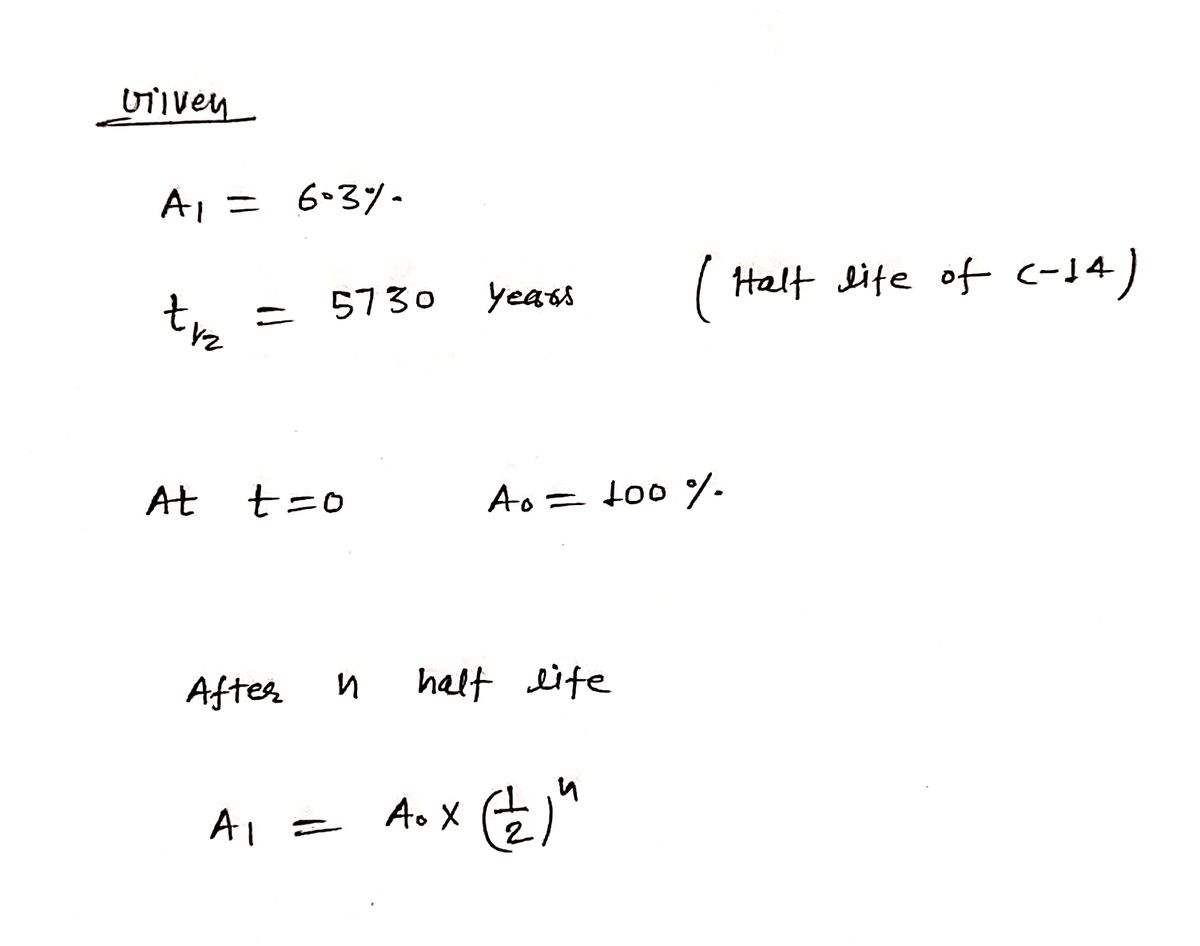 Given
A₁ = 6.3%.
t₁/₂ = 5730 years (Half life of C-14)
At t=0 A₀ = 100 %.
After n half life
A₁ = A₀ × (1/2)ⁿ